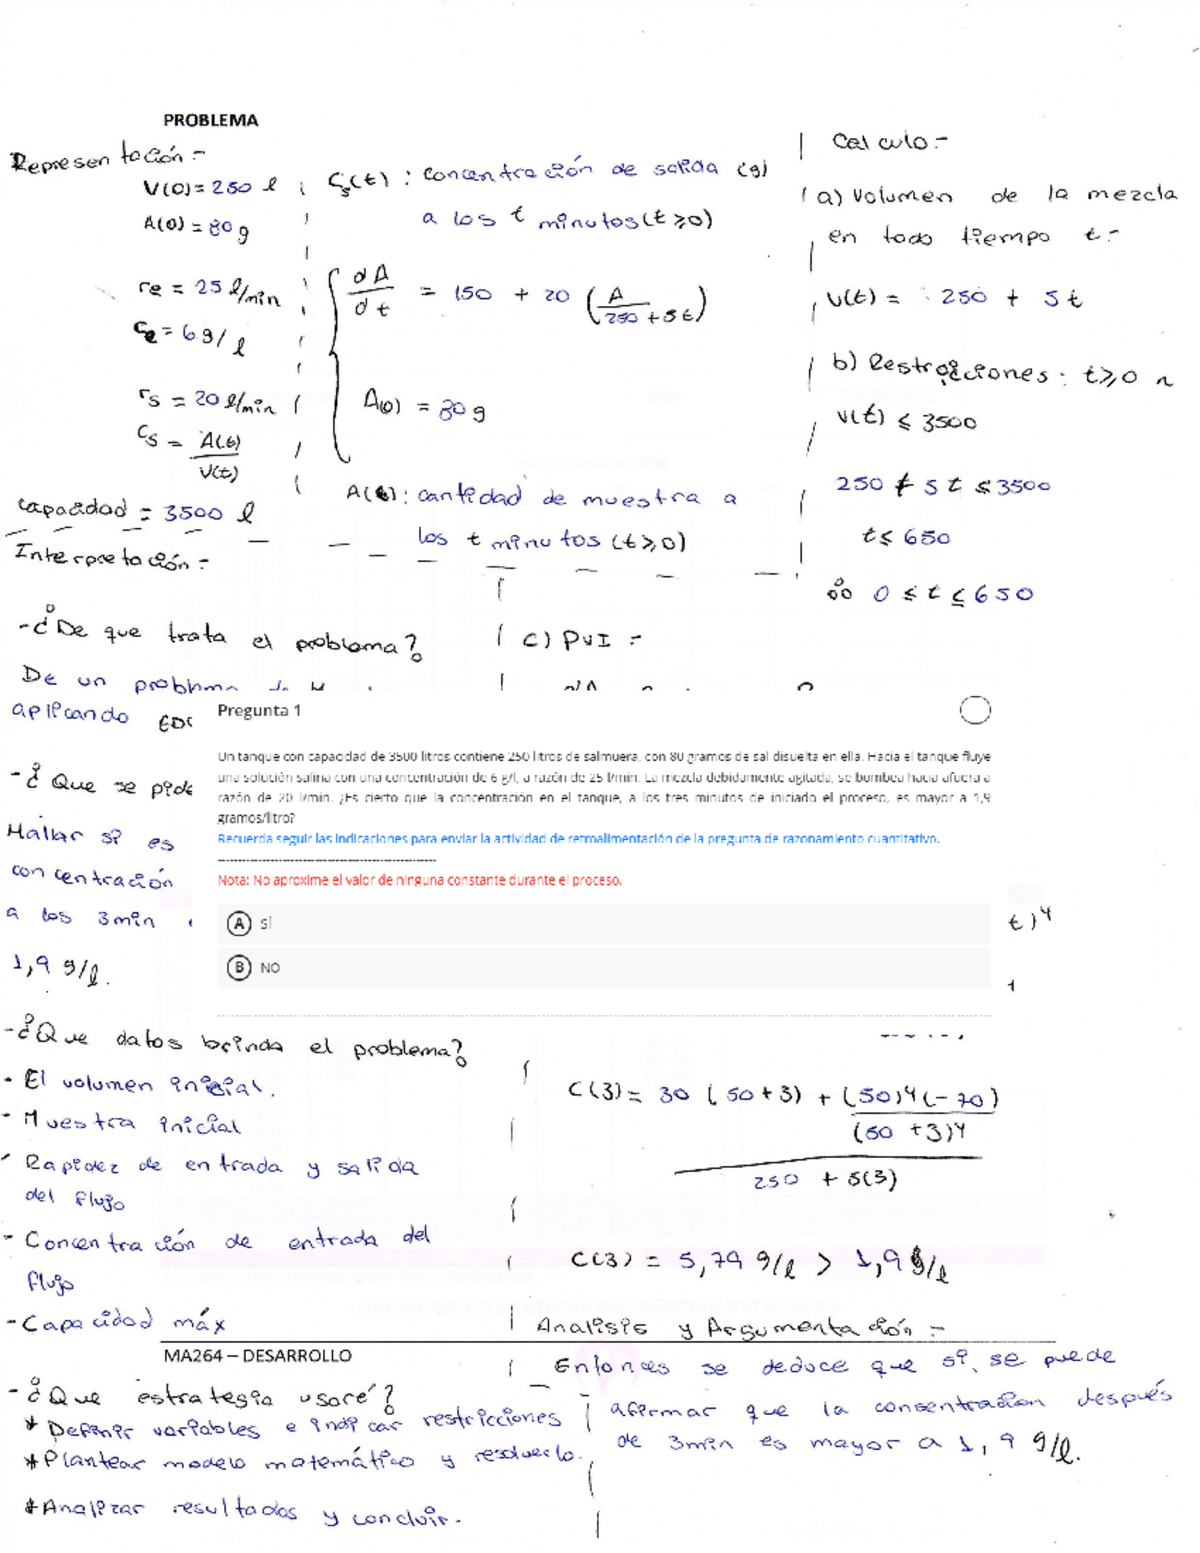 PROBLEMA
Representación:-
V(0)= 250 l
A(0) = 80 g
re = 25 l/min
Ce = 6 g/l
rs = 20 l/min
Cs = A(t)/V(t)
capacidad = 3500 l
Cs(t) : concentración de salida (g)
a los t minutos (t≥0)
dA/dt = 150 + 20 (A/250+5t)
A(0) = 80 g
A(t): cantidad de muestra a
los t minutos (t≥0)
Calculo:-
(a) Volumen de la mezcla
en todo tiempo t:-
V(t) = 250 + 5t
b) Restricciones: t≥0 ∧
V(t) ≤ 3500
250 + 5t ≤ 3500
t≤ 650
∴ 0 ≤ t ≤ 650
Interpretación:-
-¿De que trata el problema?
De un problema de
aplicando
c) PVI :-
dA
Pregunta 1
Un tanque con capacidad de 3500 litros contiene 250 litros de salmuera, con 80 gramos de sal disuelta en ella. Hacia el tanque fluye
una solución salina con una concentración de 6 g/l, a razón de 25 l/min. La mezcla debidamente agitada, se bombea hacia afuera a
razón de 20 l/min. ¿Es cierto que la concentración en el tanque, a los tres minutos de iniciado el proceso, es mayor a 1,9
gramos/litro?
Recuerda seguir las indicaciones para enviar la actividad de retroalimentación de la pregunta de razonamiento cuantitativo.
Nota: No aproxime el valor de ninguna constante durante el proceso.
A SÍ
B NO
-¿Que se pide
Hallar si es
concentración
a los 3min
1,9 g/l.
t)⁴
-¿Que datos brinda el problema?
- El volumen inicial.
- Muestra inicial
- Rapidez de entrada y salida
del flujo
- Concentración de entrada del
flujo
- Capacidad máx
C(3)= 30 (50+3) + (50)⁴(-70)
(50 +3)⁴
250 + 5(3)
C(3) = 5,79 g/l > 1,9 g/l
Analisis y Argumentación:-
MA264 – DESARROLLO
Entonces se deduce que si, se puede
afirmar que la consentración después
de 3min es mayor a 1,9 g/l.
-¿Que estrategia usaré?
* Definir variables e indicar restricciones
* Plantear modelo matemático y resolverlo.
* Analizar resultados y concluir.